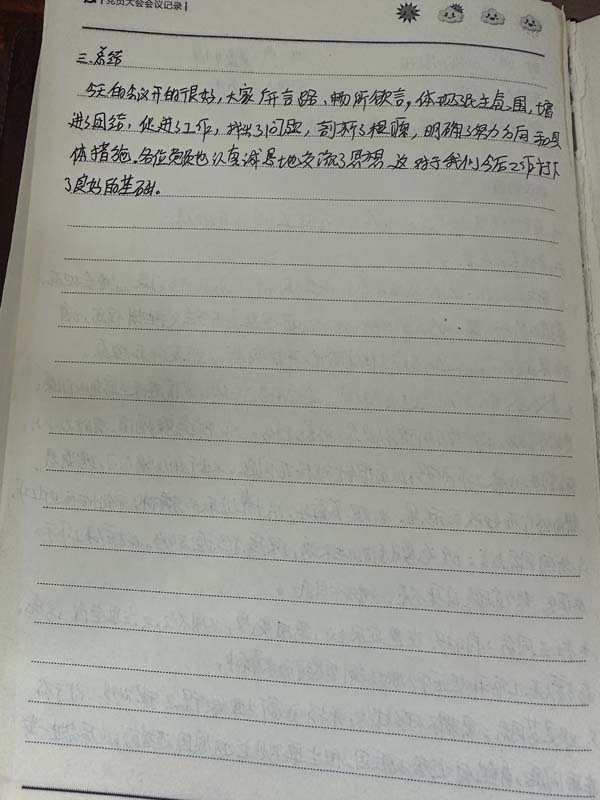 党员大会会议记录
三.总结
今天的会议开的很好,大家广开言路、畅所欲言,体现了民主氛围,增
进了团结,促进了工作,找出了问题,剖析了根源,明确了努力方向和具
体措施。各位党员也认真诚恳地交流了思想,这对于我们今后工作打下
了良好的基础。